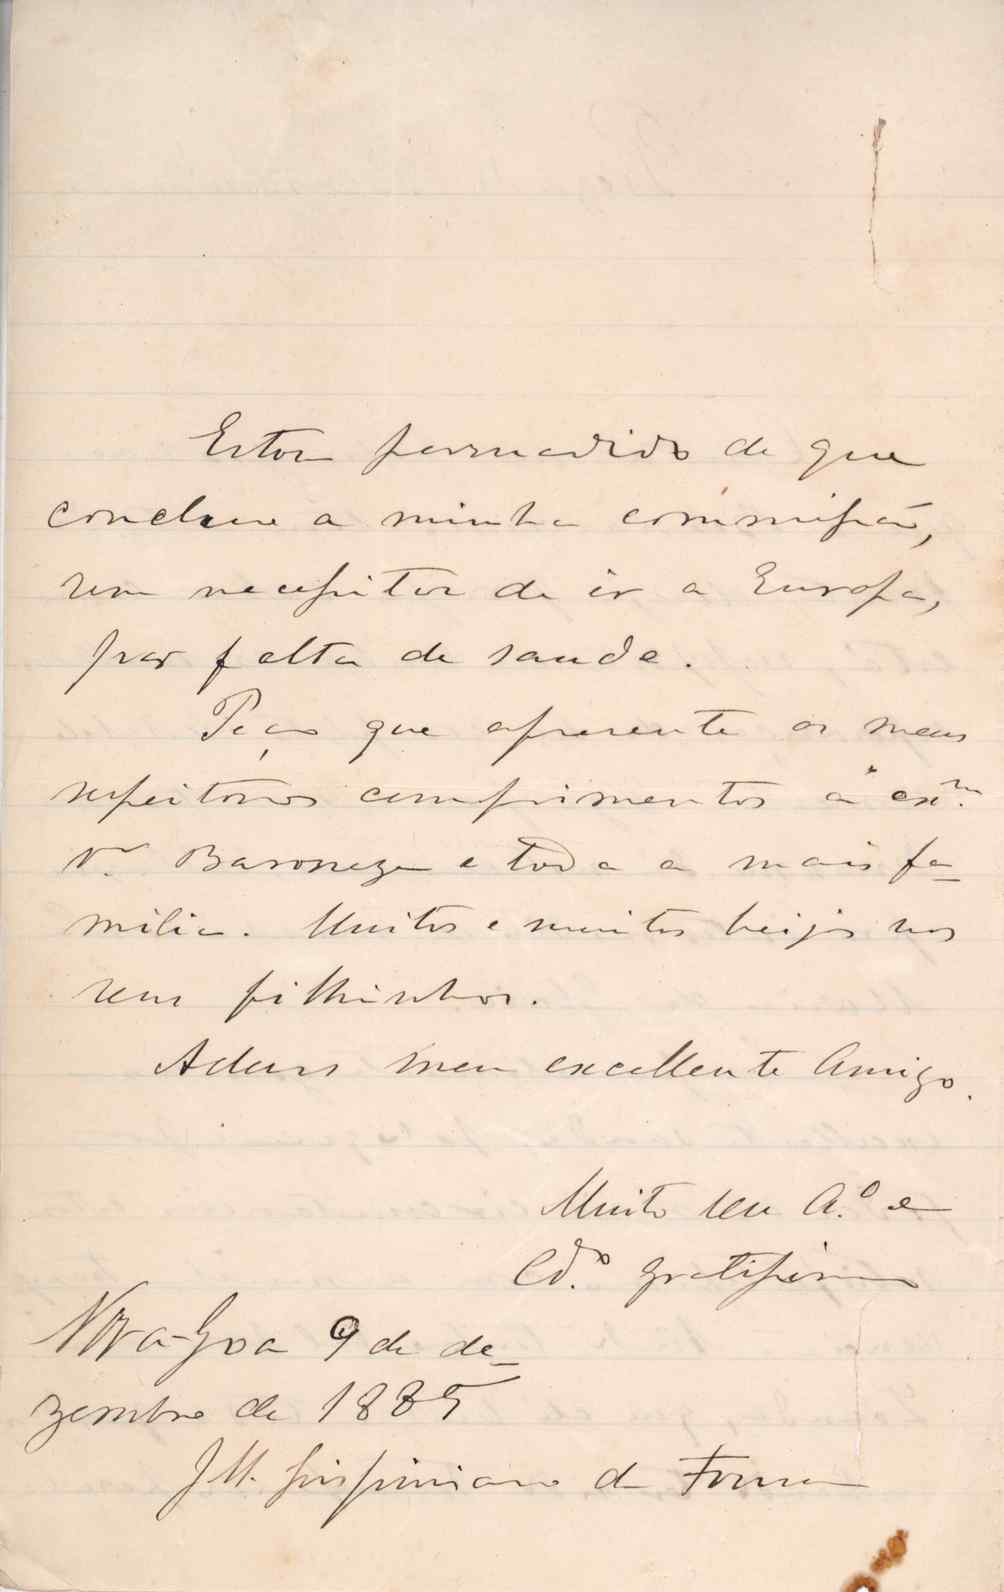 Estou persuadido de que
concluo a minha commissão,
sem necessitar de ir a Europa,
por falta de saude.
Peço que apresente os meus
respeitosos comprimentos á exm.
Srª Baroneza e toda a mais fa-
milia. Muitos e muitos beijos nos
seus filhinhos.
Adeus meu excellente Amigo.
Muito seu A.º e
Cdº. gratissimo
Nova-Goa 9 de de-
zembro de 1885
J M. Crispiniano da Fonseca